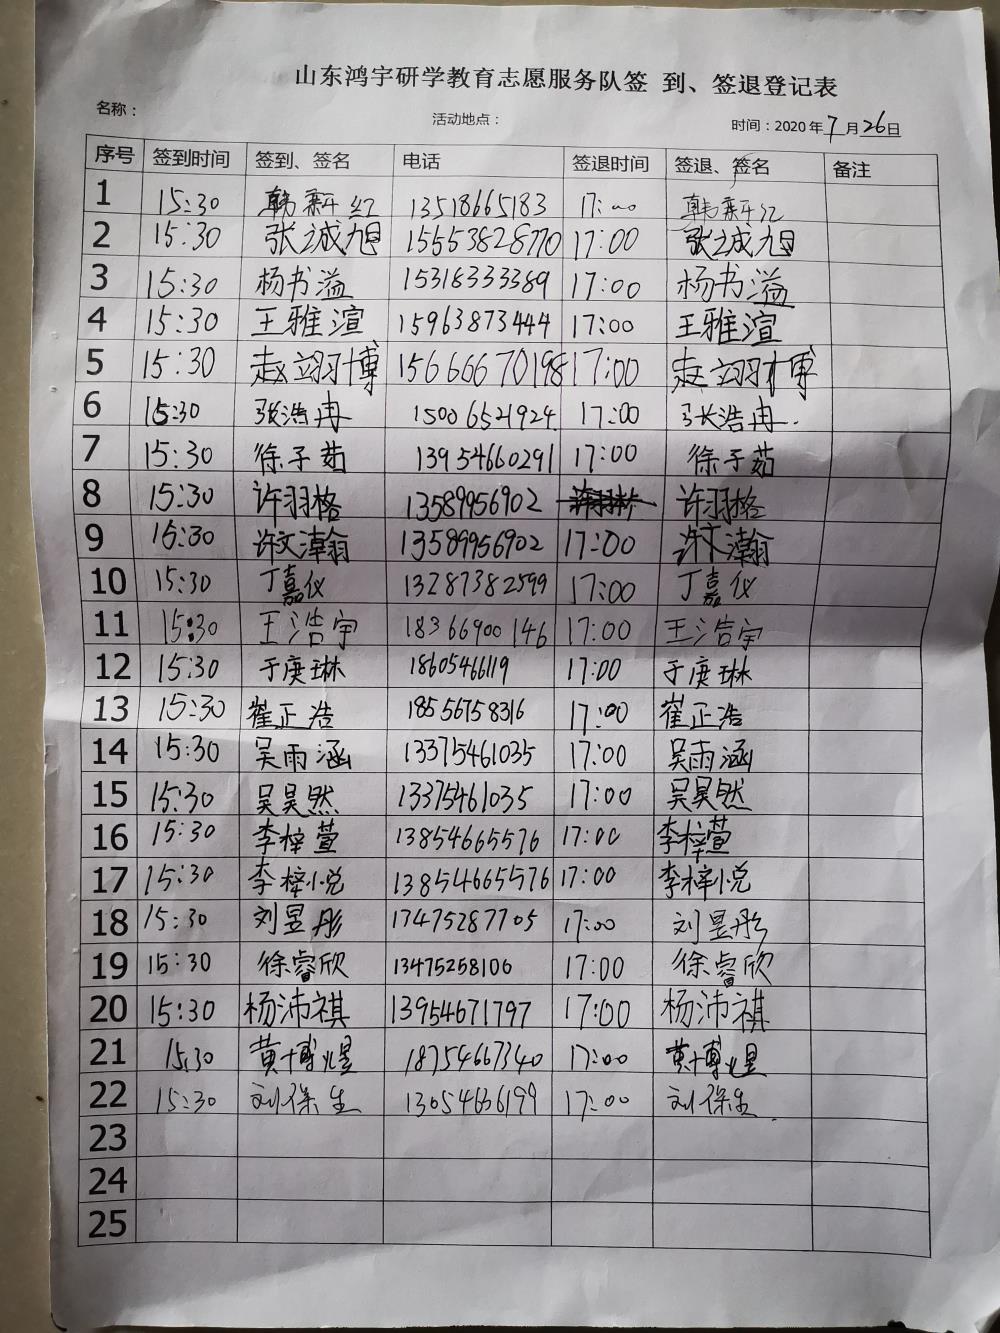 山东鸿宇研学教育志愿服务队签 到、签退登记表
名称： 活动地点： 时间：2020年7月26日
序号 签到时间 签到、签名 电话 签退时间 签退、签名 备注
1 15:30 韩新红 13518665183 17:00 韩新红
2 15:30 张诚旭 15553828770 17:00 张诚旭
3 15:30 杨书溢 15318333389 17:00 杨书溢
4 15:30 王雅渲 15963873444 17:00 王雅渲
5 15:30 赵翊博 15666670198 17:00 赵翊博
6 15:30 张浩冉 15006521924 17:00 张浩冉
7 15:30 徐子茹 13954660291 17:00 徐子茹
8 15:30 许羽格 13589956902 许羽格
9 15:30 许文瀚 13589956902 17:00 许文瀚
10 15:30 丁嘉仪 13287382599 17:00 丁嘉仪
11 15:30 王浩宇 18366900146 17:00 王浩宇
12 15:30 于庚琳 18605466119 17:00 于庚琳
13 15:30 崔正浩 18556758316 17:00 崔正浩
14 15:30 吴雨涵 13375461035 17:00 吴雨涵
15 15:30 吴昊然 13375461035 17:00 吴昊然
16 15:30 李梓萱 13854665576 17:00 李梓萱
17 15:30 李梓悦 13854665576 17:00 李梓悦
18 15:30 刘昱彤 17475287705 17:00 刘昱彤
19 15:30 徐睿欣 13475258106 17:00 徐睿欣
20 15:30 杨沛祺 13954671797 17:00 杨沛祺
21 15:30 黄博煜 18754667340 17:00 黄博煜
22 15:30 刘保生 13054666199 17:00 刘保生
23
24
25